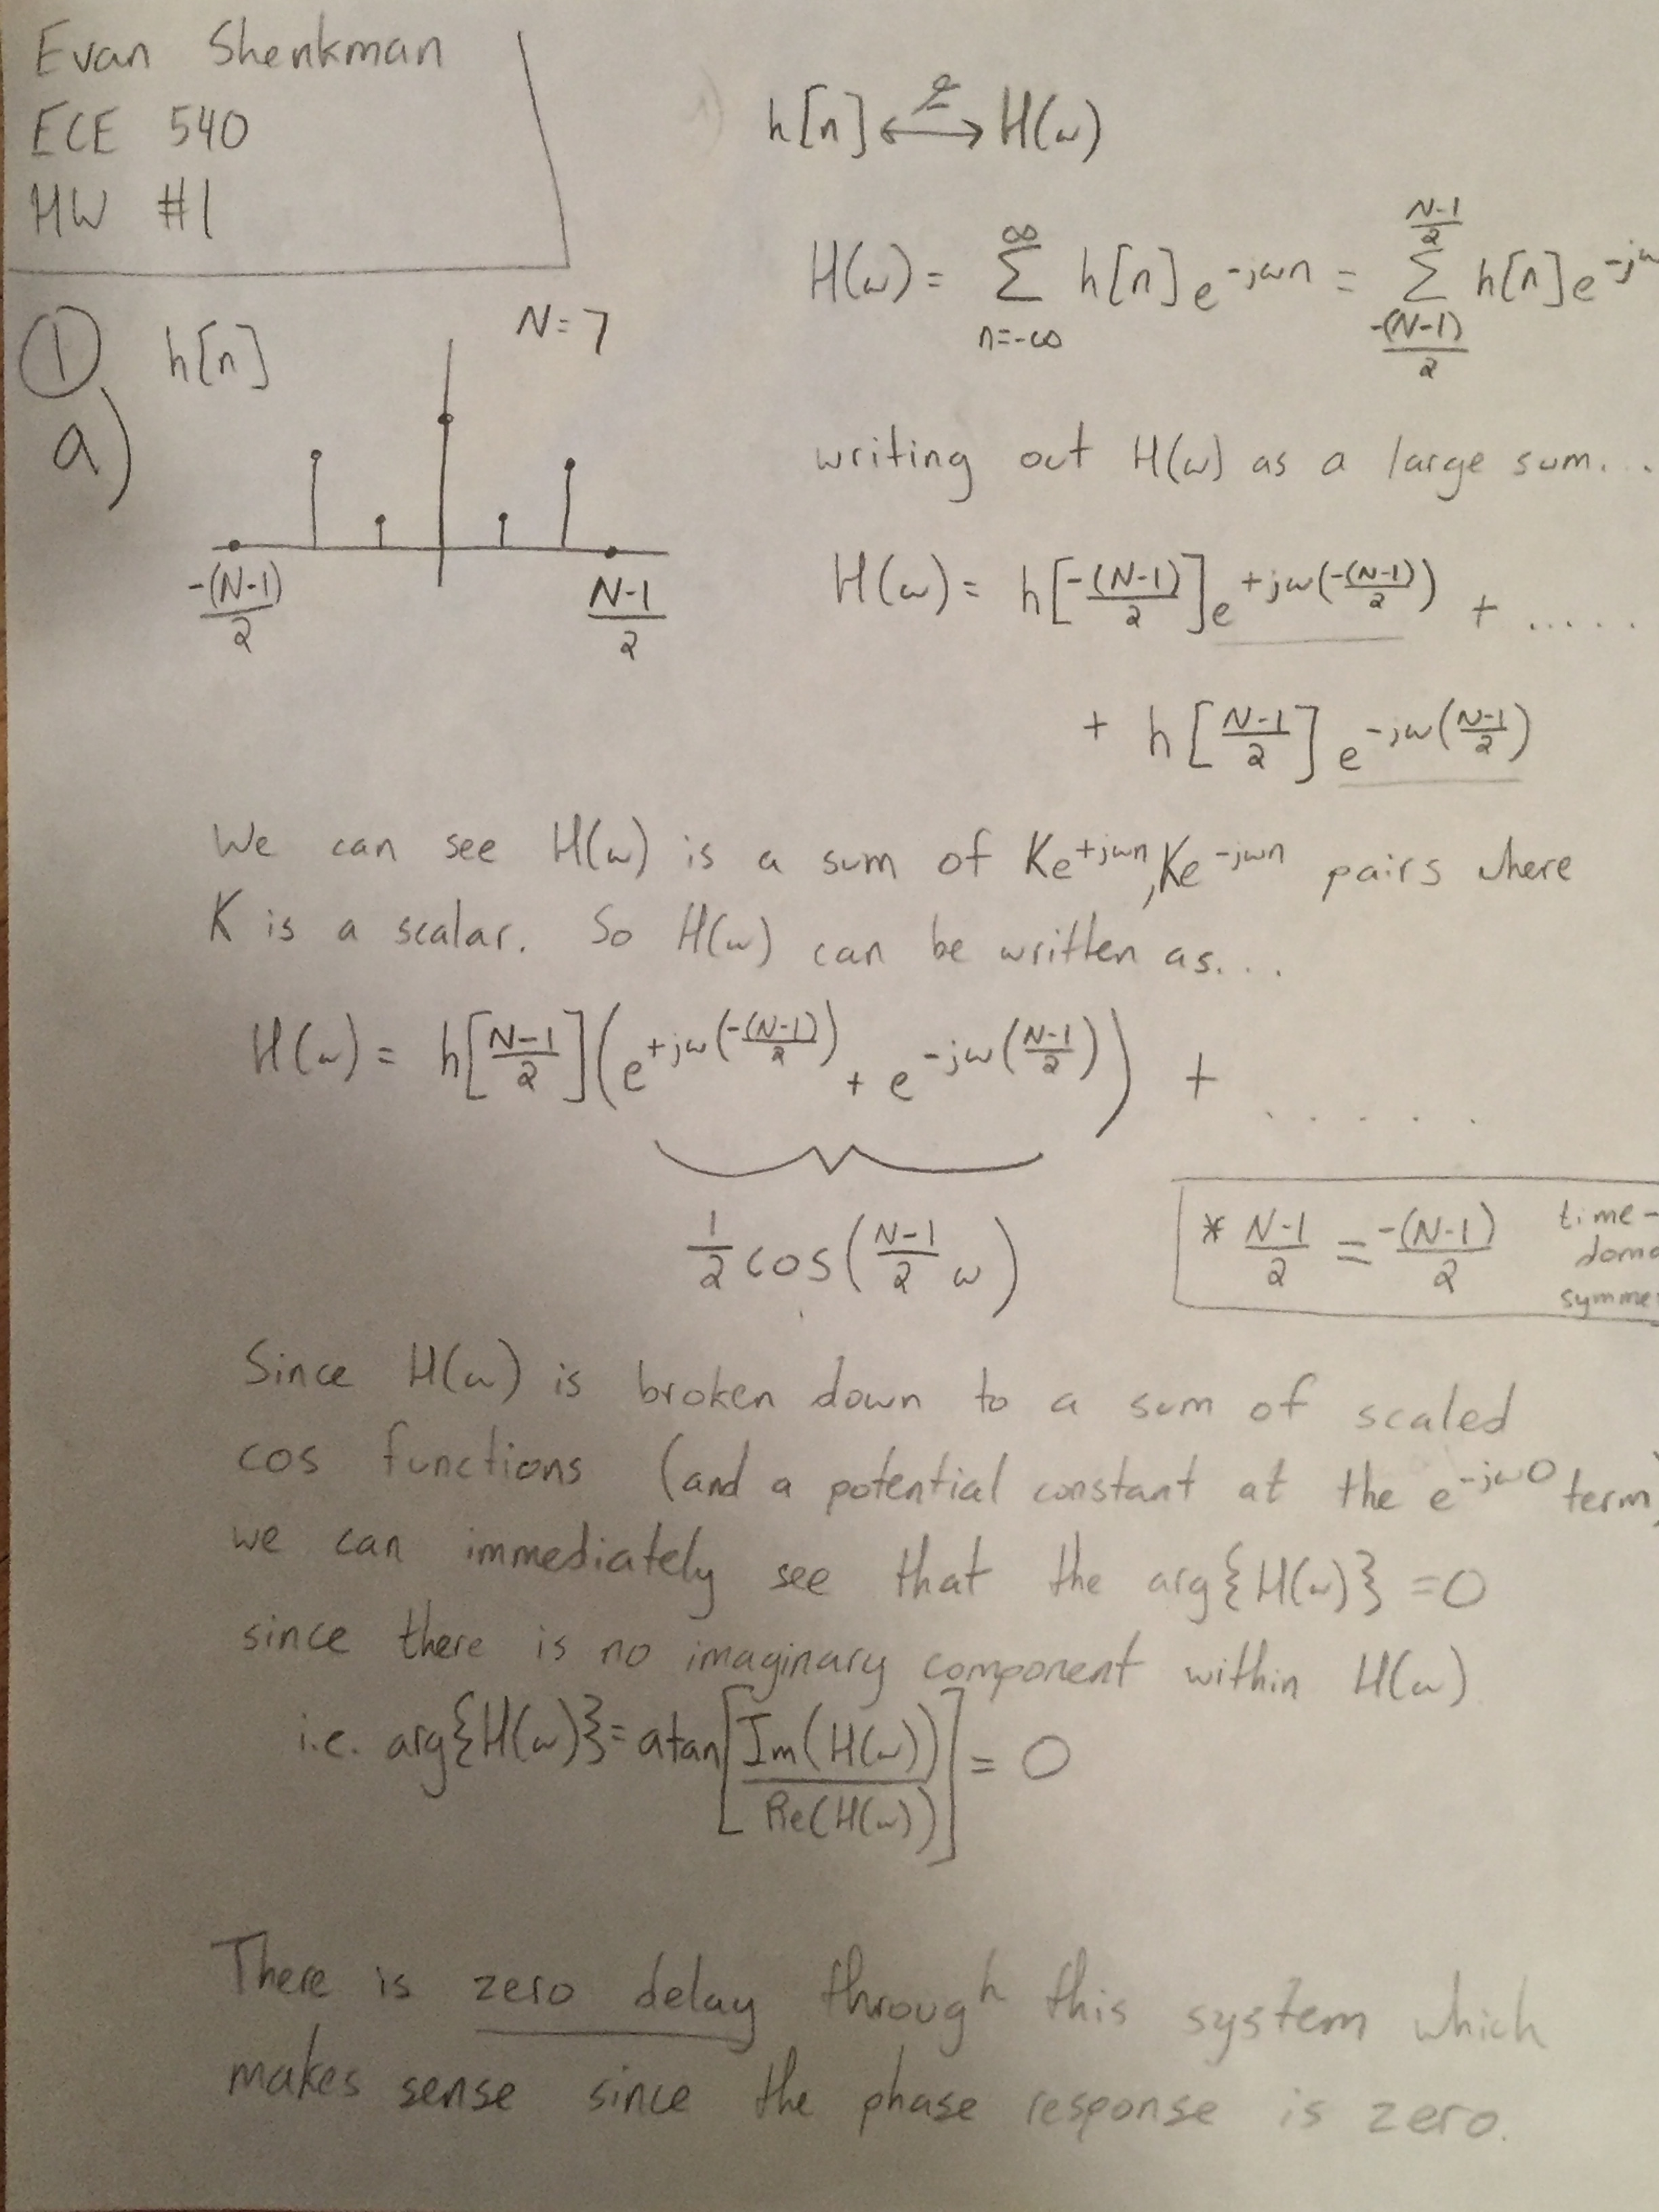 Evan Shenkman
ECE 540
HW #1
h[n] ⟷ H(ω)
H(ω) = Σ_{n=-∞}^{∞} h[n] e^{-jωn} = Σ_{-(N-1)/2}^{(N-1)/2} h[n] e^{-jω
① h[n] N=7
a)
-(N-1)/2 (N-1)/2
writing out H(ω) as a large sum...
H(ω) = h[-(N-1)/2] e^{+jω(-(N-1)/2)} + .....
+ h[(N-1)/2] e^{-jω((N-1)/2)}
We can see H(ω) is a sum of Ke^{+jωn}, Ke^{-jωn} pairs where
K is a scalar. So H(ω) can be written as...
H(ω) = h[(N-1)/2] (e^{+jω(-(N-1)/2)} + e^{-jω((N-1)/2)}) + .....
1/2 cos((N-1)/2 ω)
* (N-1)/2 = -(N-1)/2 time-
Since H(ω) is broken down to a sum of scaled
cos functions (and a potential constant at the e^{-jω0} term)
we can immediately see that the arg{H(ω)} = 0
since there is no imaginary component within H(ω)
i.e. arg{H(ω)} = atan[Im(H(ω))/Re(H(ω))] = 0
There is zero delay through this system which
makes sense since the phase response is zero.